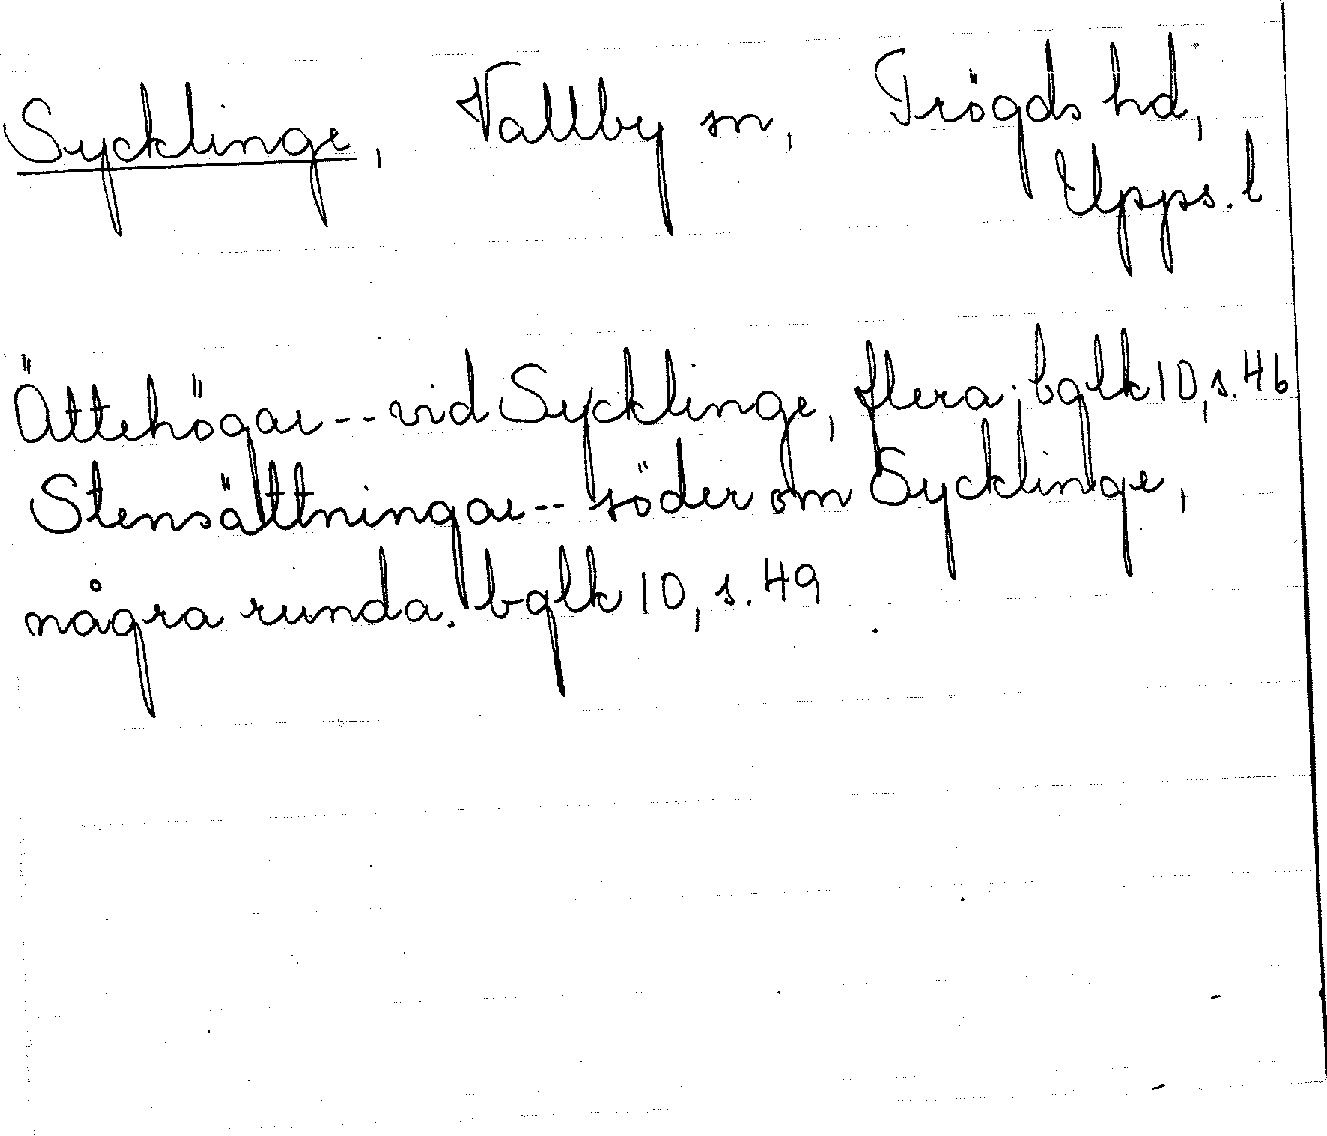 Sycklinge, Vallby sn, Trögds hd,
Upps. l
Ättehögar -- vid Sycklinge, flera; bglk 10, s. 46
Stensättningar -- söder om Sycklinge,
några runda. bglk 10, s. 49